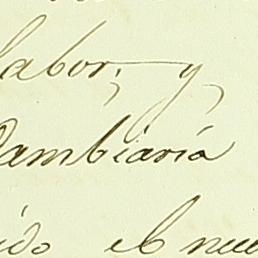 labor; y,
Cambiaría
ido el nue